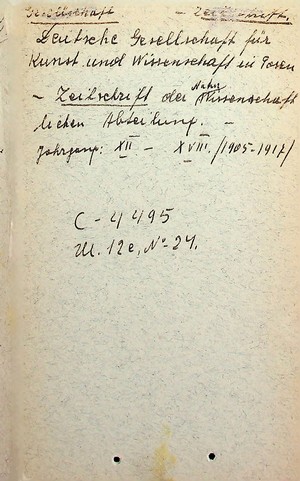 Gesellschaft - Zeitschrift.
Deutsche Gesellschaft für
Kunst und Wissenschaft in Posen
- Zeitschrift der Naturwissenschaft
lichen Abteilung. -
Jahrgang: XII - XVIII. /1905-1917/
C-4495
M. 12e, No 24.